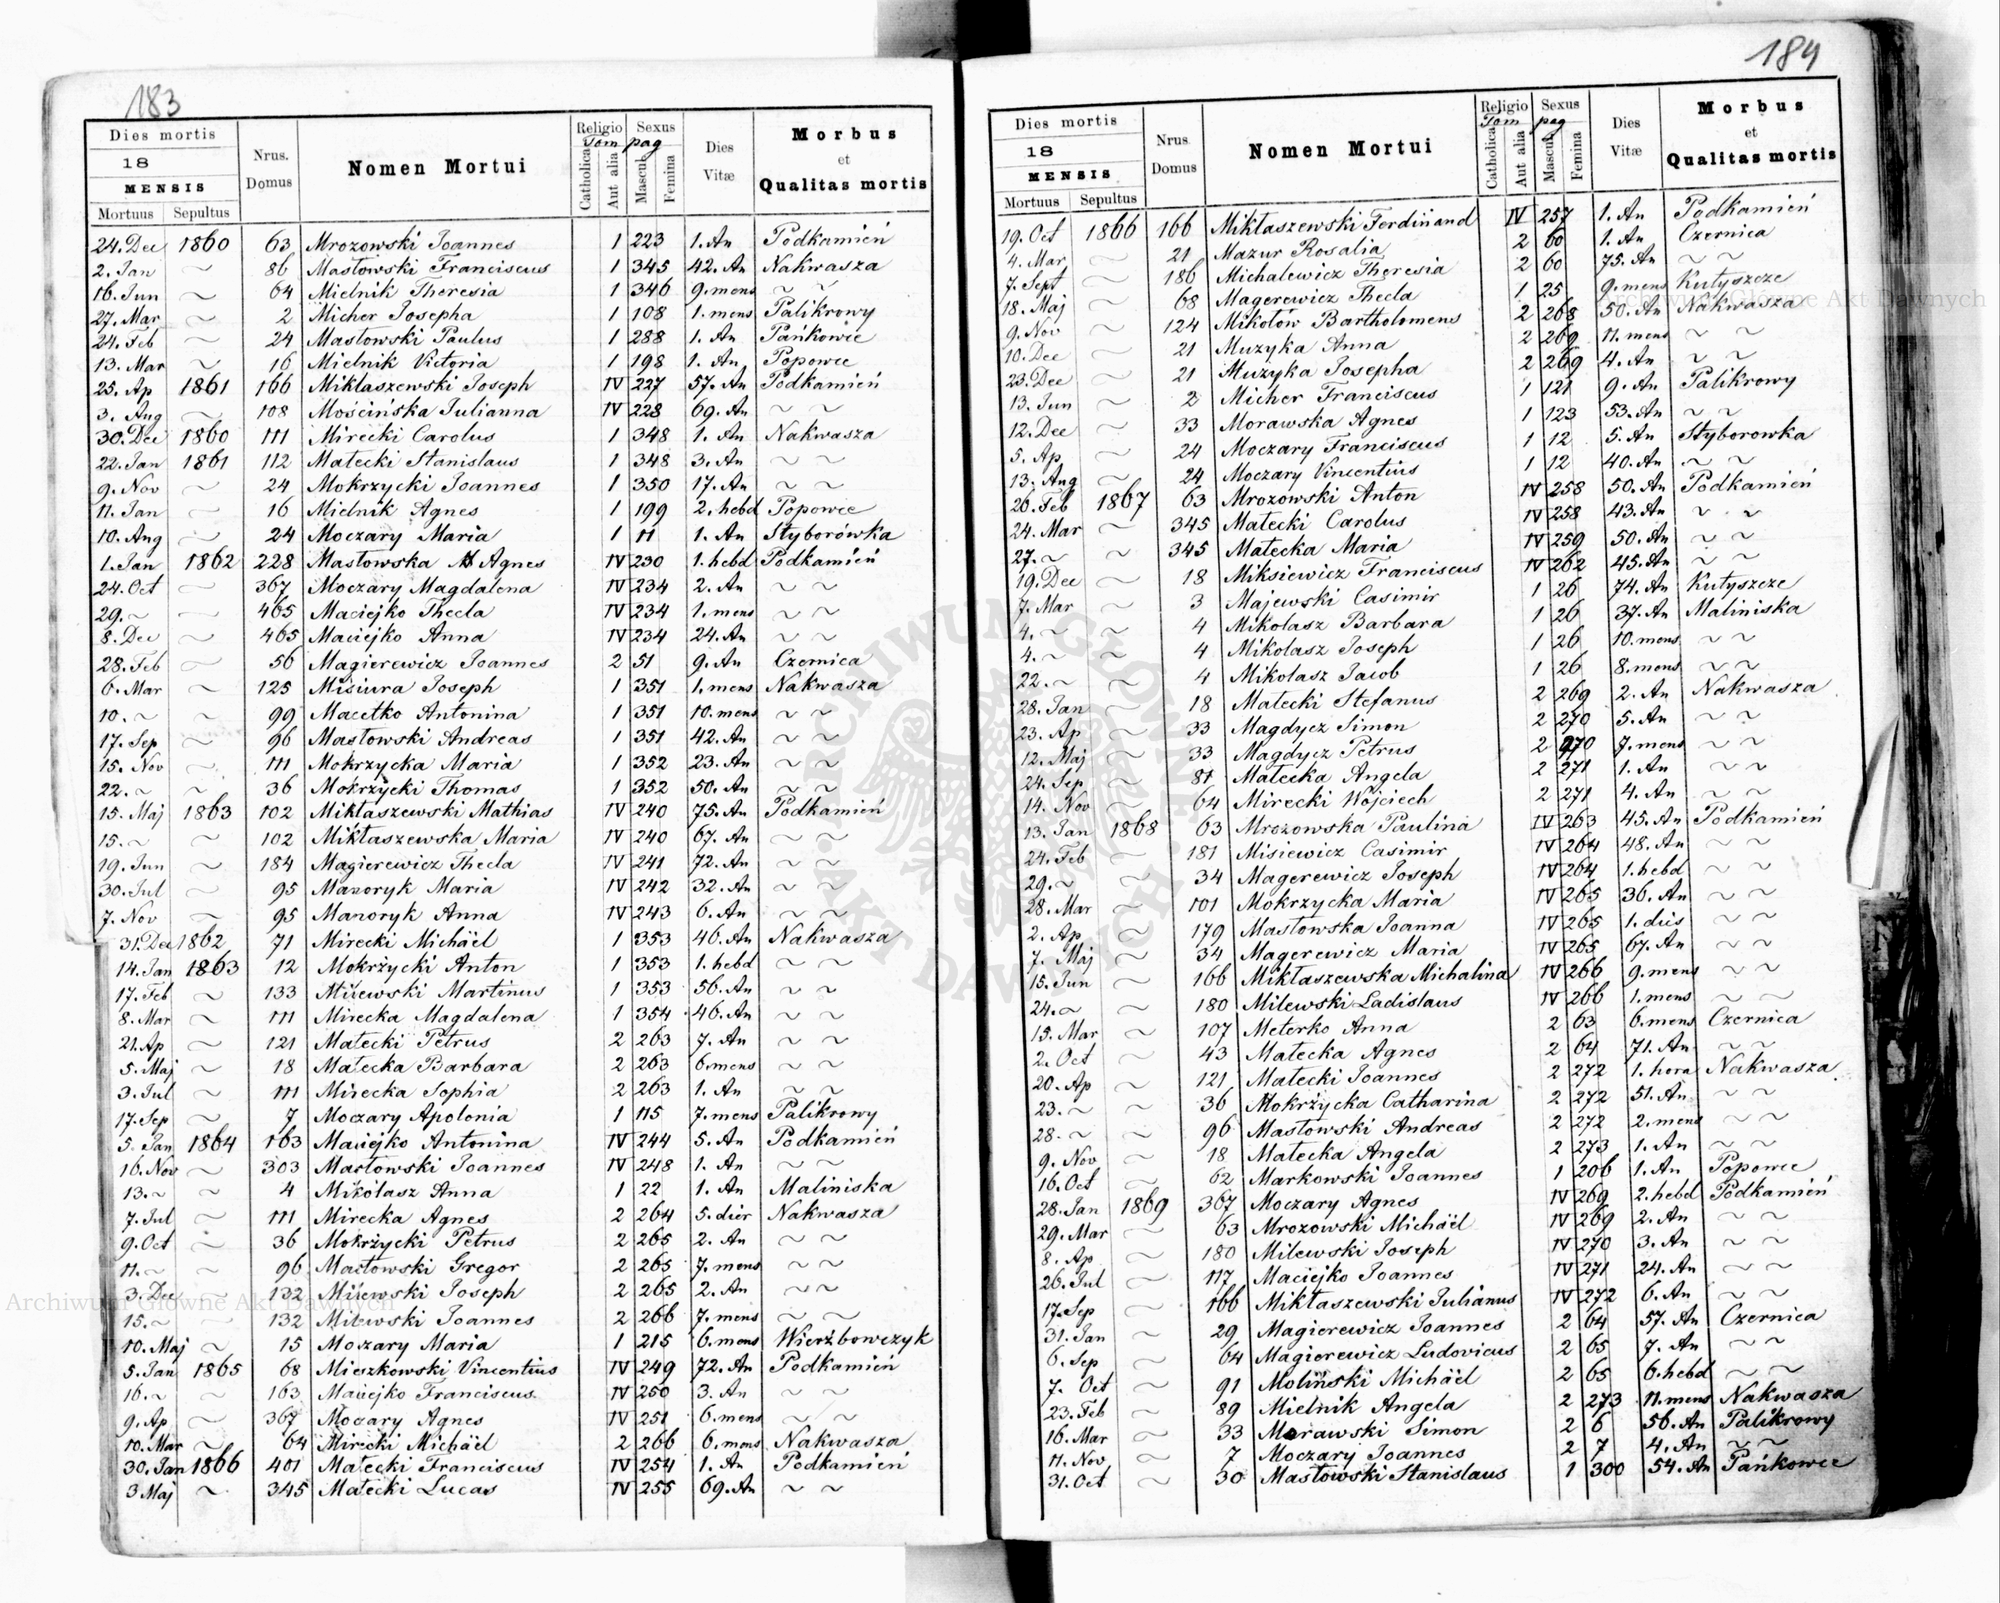 183
Dies mortis
18
MENSIS
Mortuus Sepultus
Nrus. Domus
Nomen Mortui
Religio Sexus
Tom pag
Catholica Aut alia Mascul. Femina
Dies Vitæ
Morbus et Qualitas mortis
24. Dec 1860 63 Mrozowski Joannes 1 223 1. An Podkamień
2. Jan ~ 86 Masłowski Franciscus 1 345 42. An Nakwasza
16. Jun ~ 64 Mielnik Theresia 1 346 9. mens ~ ~
27. Mar ~ 2 Micher Josepha 1 108 1. mens Palikrowy
24. Feb ~ 24 Masłowski Paulus 1 288 1. An Pańkowce
13. Mar ~ 16 Mielnik Victoria 1 198 1. An Popowce
25. Ap 1861 166 Mikłaszewski Joseph IV 227 57. An Podkamień
3. Aug ~ 108 Mościńska Julianna IV 228 69. An ~ ~
30. Dec 1860 111 Mirecki Carolus 1 348 1. An Nakwasza
22. Jan 1861 112 Małecki Stanislaus 1 348 3. An ~ ~
9. Nov ~ 24 Mokrzycki Joannes 1 350 17. An ~ ~
11. Jan ~ 16 Mielnik Agnes 1 199 2. hebd Popowce
10. Aug ~ 24 Moczary Maria 1 11 1. An Styborówka
1. Jan 1862 228 Masłowska Agnes IV 230 1. hebd Podkamień
24. Oct ~ 367 Moczary Magdalena IV 234 2. An ~ ~
29. ~ ~ 465 Maciejko Thecla IV 234 1. mens ~ ~
8. Dec ~ 465 Maciejko Anna IV 234 24. An ~ ~
28. Feb ~ 56 Magierewicz Joannes 2 51 9. An Czernica
6. Mar ~ 125 Misiura Joseph 1 351 1. mens Nakwasza
10. ~ ~ 99 Macetko Antonina 1 351 10. mens ~ ~
17. Sep ~ 96 Masłowski Andreas 1 351 42. An ~ ~
15. Nov ~ 111 Mokrzycka Maria 1 352 23. An ~ ~
22. ~ ~ 36 Mokrzycki Thomas 1 352 50. An ~ ~
15. Maj 1863 102 Mikłaszewski Mathias IV 240 75. An Podkamień
15. ~ ~ 102 Mikłaszewska Maria IV 240 67. An ~ ~
19. Jun ~ 184 Magierewicz Thecla IV 241 72. An ~ ~
30. Jul ~ 95 Manoryk Maria IV 242 32. An ~ ~
7. Nov ~ 95 Manoryk Anna IV 243 6. An ~ ~
31. Dec 1862 71 Mirecki Michäel 1 353 46. An Nakwasza
14. Jan 1863 12 Mokrzycki Anton 1 353 1. hebd ~ ~
17. Feb ~ 133 Milewski Martinus 1 353 56. An ~ ~
8. Mar ~ 111 Mirecka Magdalena 1 354 46. An ~ ~
21. Ap ~ 121 Małecki Petrus 2 263 7. An ~ ~
5. Maj ~ 18 Małecka Barbara 2 263 6. mens ~ ~
3. Jul ~ 111 Mirecka Sophia 2 263 1. An ~ ~
17. Sep ~ 7 Moczary Apolonia 1 115 7. mens Palikrowy
5. Jan 1864 163 Maciejko Antonina IV 244 5. An Podkamień
16. Nov ~ 303 Masłowski Joannes IV 248 1. An ~ ~
13. ~ ~ 4 Mikolasz Anna 1 22 1. An Maliniska
7. Jul ~ 111 Mirecka Agnes 2 264 5. dier Nakwasza
9. Oct ~ 36 Mokrzycki Petrus 2 265 2. An ~ ~
11. ~ ~ 96 Masłowski Gregor 2 265 7. mens ~ ~
3. Dec ~ 132 Milewski Joseph 2 265 2. An ~ ~
15. ~ ~ 132 Milewski Joannes 2 266 7. mens ~ ~
10. Maj ~ 15 Moczary Maria 1 215 6. mens Wierżbowczyk
5. Jan 1865 68 Mieszkowski Vincentius IV 249 72. An Podkamień
16. ~ ~ 163 Maciejko Franciscus IV 250 3. An ~ ~
9. Ap ~ 367 Moczary Agnes IV 251 6. mens ~ ~
10. Mar ~ 64 Mirecki Michäel 2 266 6. mens Nakwasza
30. Jan 1866 401 Małecki Franciscus IV 254 1. An Podkamień
3 Maj ~ 345 Małecki Lucas IV 255 69. An ~ ~
184
Dies mortis
18
MENSIS
Mortuus Sepultus
Nrus. Domus
Nomen Mortui
Religio Sexus
Tom pag
Catholica Aut alia Mascul. Femina
Dies Vitæ
Morbus et Qualitas mortis
19. Oct 1866 166 Mikłaszewski Ferdinand IV 257 1. An Podkamień
4. Mar ~ 21 Mazur Rosalia 2 60 1. An Czernica
7. Sept ~ 186 Michalewicz Theresia 2 60 75. An ~ ~
18. Maj ~ 68 Magerewicz Thecla 1 25 9. mens Kutyszcze
9. Nov ~ 124 Mikołów Bartholomeus 2 268 50. An Nakwasza
10. Dec ~ 21 Muzyka Anna 2 269 11. mens ~ ~
23. Dec ~ 21 Muzyka Josepha 2 269 4. An ~ ~
13. Jun ~ 2 Micher Franciscus 1 121 9. An Palikrowy
12. Dec ~ 33 Morawska Agnes 1 123 53. An ~ ~
5. Ap ~ 24 Moczary Franciscus 1 12 5. An Styborowka
13. Aug ~ 24 Moczary Vincentius 1 12 40. An ~ ~
26. Feb 1867 63 Mrozowski Anton IV 258 50. An Podkamień
24. Mar ~ 345 Małecki Carolus IV 258 43. An ~ ~
27. ~ ~ 345 Małecka Maria IV 259 50. An ~ ~
19. Dec ~ 18 Miksiewicz Franciscus IV 262 45. An ~ ~
7. Mar ~ 3 Majewski Casimir 1 26 74. An Kutyszcze
4. ~ ~ 4 Mikolasz Barbara 1 26 37. An Maliniska
4. ~ ~ 4 Mikolasz Joseph 1 26 10. mens ~ ~
22. ~ ~ 4 Mikolasz Jacob 1 26 8. mens ~ ~
28. Jan ~ 18 Małecki Stefanus 2 269 2. An Nakwasza
23. Ap ~ 33 Magdycz Simon 2 270 5. An ~ ~
12. Maj ~ 33 Magdycz Petrus 2 270 7. mens ~ ~
24. Sep ~ 81 Małecka Angela 2 271 1. An ~ ~
14. Nov ~ 64 Mirecki Wojciech 2 271 4. An ~ ~
13. Jan 1868 63 Mrozowska Paulina IV 263 45. An Podkamień
24. Feb ~ 181 Misiewicz Casimir IV 264 48. An ~ ~
29. ~ ~ 34 Magerewicz Joseph IV 264 1. hebd ~ ~
28. Mar ~ 101 Mokrzycka Maria IV 265 36. An ~ ~
2. Ap ~ 179 Masłowska Joanna IV 265 1. dies ~ ~
7. Maj ~ 34 Magerewicz Maria IV 265 67. An ~ ~
15. Jun ~ 166 Mikłaszewska Michalina IV 266 9. mens ~ ~
24. ~ ~ 180 Milewski Ladislaus IV 266 1. mens ~ ~
15. Mar ~ 107 Meterko Anna 2 63 6. mens Czernica
2. Oct ~ 43 Małecka Agnes 2 64 71. An ~ ~
20. Ap ~ 121 Małecki Joannes 2 272 1. hora Nakwasza
23. ~ ~ 36 Mokrzycka Catharina 2 272 51. An ~ ~
28. ~ ~ 96 Masłowski Andreas 2 272 2. mens ~ ~
9. Nov ~ 18 Małecka Angela 2 273 1. An ~ ~
16. Oct ~ 62 Markowski Joannes 1 206 1. An Popowce
28. Jan 1869 367 Moczary Agnes IV 269 2. hebd Podkamień
29. Mar ~ 63 Mrozowski Michäel IV 269 2. An ~ ~
8. Ap ~ 180 Milewski Joseph IV 270 3. An ~ ~
26. Jul ~ 117 Maciejko Joannes IV 271 24. An ~ ~
17. Sep ~ 166 Mikłaszewski Julianus IV 272 6. An ~ ~
31. Jan ~ 29 Magierewicz Joannes 2 64 57. An Czernica
6. Sep ~ 64 Magierewicz Ludovicus 2 65 7. An ~ ~
7. Oct ~ 91 Moliński Michäel 2 65 6. hebd ~ ~
23. Feb ~ 89 Mielnik Angela 2 273 11. mens Nakwasza
16. Mar ~ 33 Morawski Simon 2 6 56. An Palikrowy
11. Nov ~ 7 Moczary Joannes 2 7 4. An ~ ~
31. Oct ~ 30 Masłowski Stanislaus 1 300 54. An Pańkowce
Archiwum Główne Akt Dawnych
Archiwum Główne Akt Dawnych
ARCHIWUM GŁÓWNE AKT DAWNYCH